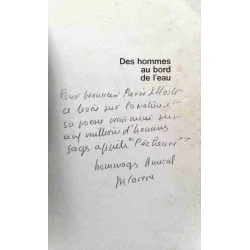 Des hommes
au bord
de l'eau
Pour Monsieur Pierre
ce livre sur la rivière et
sa pêche mais aussi sur
cinq millions d'hommes
sages appelés "Pêcheurs"
hommage Amical